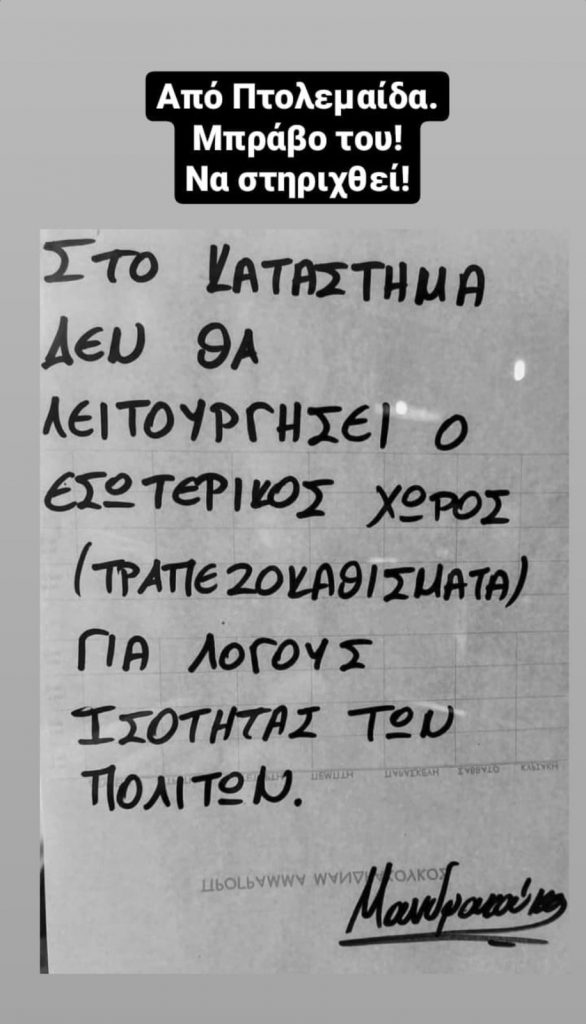 Από Πτολεμαίδα.
Μπράβο του!
Να στηριχθεί!
ΣΤΟ ΚΑΤΑΣΤΗΜΑ
ΔΕΝ ΘΑ
ΛΕΙΤΟΥΡΓΗΣΕΙ Ο
ΕΣΩΤΕΡΙΚΟΣ ΧΩΡΟΣ
(ΤΡΑΠΕΖΟΚΑΘΙΣΜΑΤΑ)
ΓΙΑ ΛΟΓΟΥΣ
ΙΣΟΤΗΤΑΣ ΤΩΝ
ΠΟΛΙΤΩΝ.
ΠΕΜΠΤΗ ΠΑΡΑΣΚΕΥΗ ΣΑΒΒΑΤΟ ΚΥΡΙΑΚΗ
ΠΡΟΓΡΑΜΜΑ